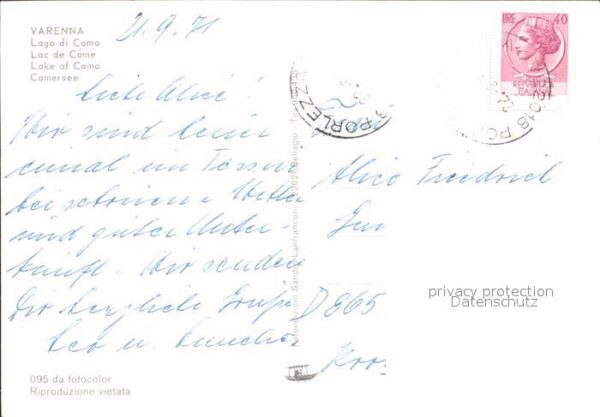 VARENNA
Lago di Como
Lac de Côme
Lake of Como
Comersee
21.9.71
Liebe Alice!
Wir sind
einmal im Tessin
bei schönem Wetter
und guter Unter-
kunft. Wir senden
Dir herzliche Grüße
Leo u.
095 da fotocolor
Riproduzione vietata
LIRE 40
REPVBBLICA
ITALIANA
PORLEZZ
22018 PO
Alice Friedrich
D 865
privacy protection
Datenschutz